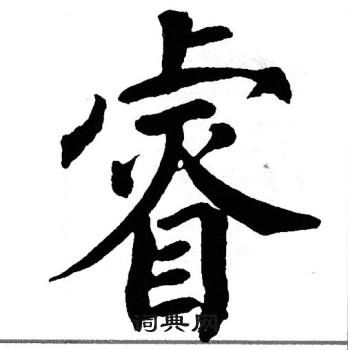 睿
词典网